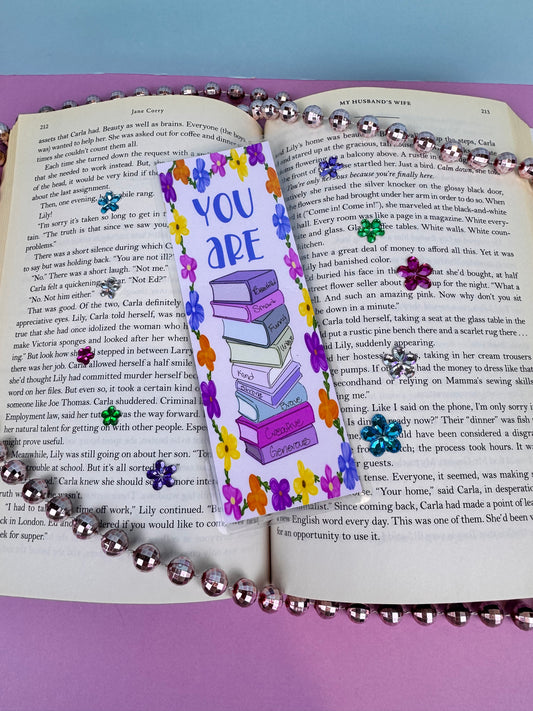 212
Jane Corry
assets that Carla had. Beauty as well as brains. Everyone (the boy
was) wanted to help her. She was asked out for coffee and dinner
times she couldn't count them all.
Each time she turned the request with
that she needed to work instead. But,
of the head, it would be rather kind if
about the last assignment.
Then, one evening, mobile rang,
Lily!
"I'm sorry it's taken so long to get in
tain. "The truth is that since we saw you,
problems."
There was a short silence during which
to say but was holding back. "You are not ill?"
"No." There was a short laugh. "Not me."
Carla felt a quickening "Not Ed?"
"No. Not him either."
That was good. Of the two, Carla definitely
appreciative eyes. Lily, Carla told herself, was not
true that she had once idolized the woman who
make Victoria sponges and looked after her when
ing." But look how she stepped in between Larry
there was her job. Carla allowed herself a half smile
she'd thought Lily had committed murder herself
word on her files. But even so, it took a certain kind of
someone like Joe Thomas. Carla shuddered. Criminal
Employment law, said her tutor, was the way forward.
her natural talent for getting on with other people.
might prove useful.
Meanwhile, Lily was still going on about her son. "Tom
trouble at school. But it's all sorted
Carla knew she should more inter
"I had to take time off work," Lily continued. "But
in London. Ed and I wondered if you would like to come
week for supper."
MY HUSBAND'S WIFE
213
YOU
ARE
Beautiful
Smart
Funny
Kind
Brave
Creative
Generous
Lily's home was up the steps, Carla
and stared up at the gracious, tall, white
front of a balcony above. A rustle in
startled her. Just a bird. Calm down, she told
only nervous because you're finally here.
she raised the silver knocker on the glossy black door,
the flowers she had brought under her arm in order to do so. When
it ("Come in! Come in!"), she marveled at the black-and-white
hall. Every room was like a page in a magazine. White every-
white and glass. Glass tables. White walls. White coun-
have a great deal of money to afford all this. Yet it was
Lily had banished color.
buried his face in the that she'd bought, at half
street flower seller about up for the night. "What a
And such an amazing pink. Now why don't you sit
down in a minute."
Carla told herself, taking a seat at the table in the
put a rustic pine bench there and a scarlet rug there . . .
Lily, suddenly appearing.
her hostess, taking in her cream trousers
pumps. If had the money to dress like that
secondhand or relying on Mamma's sewing skills
coming. Like I said on the phone, I'm only sorry it
ready now?" Their "dinner" was fish
would have been considered a disgra
the process took hours. It was
sense. Everyone, it seemed, was making
"Your home," said Carla, in desperation
Since coming back, Carla had made a point of
new English word every day. This was one of them. She'd been
for an opportunity to use it.